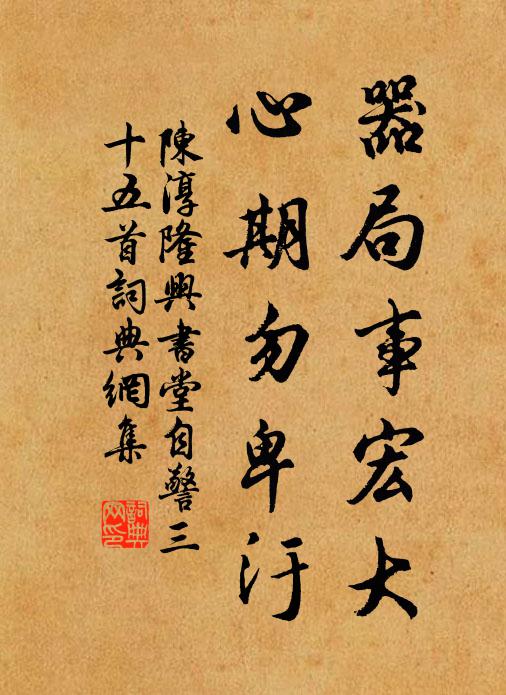 器局事宏大
心期勿卑汙
陳淳隆興書堂自警三
十五首詞典網集
詞典
网印